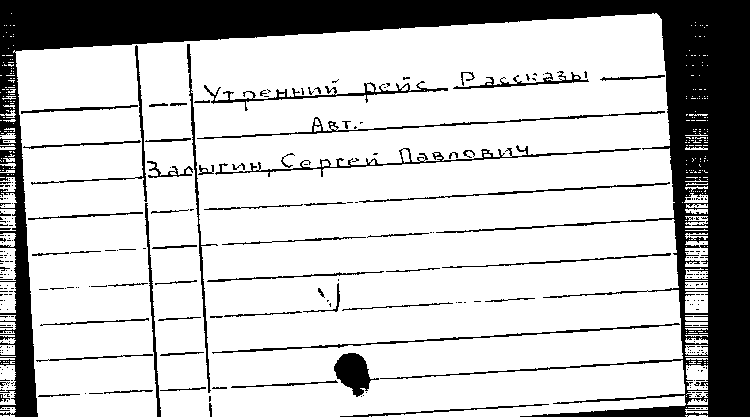 Утренний рейс Рассказы
Авт.:
Залыгин, Сергей Павлович